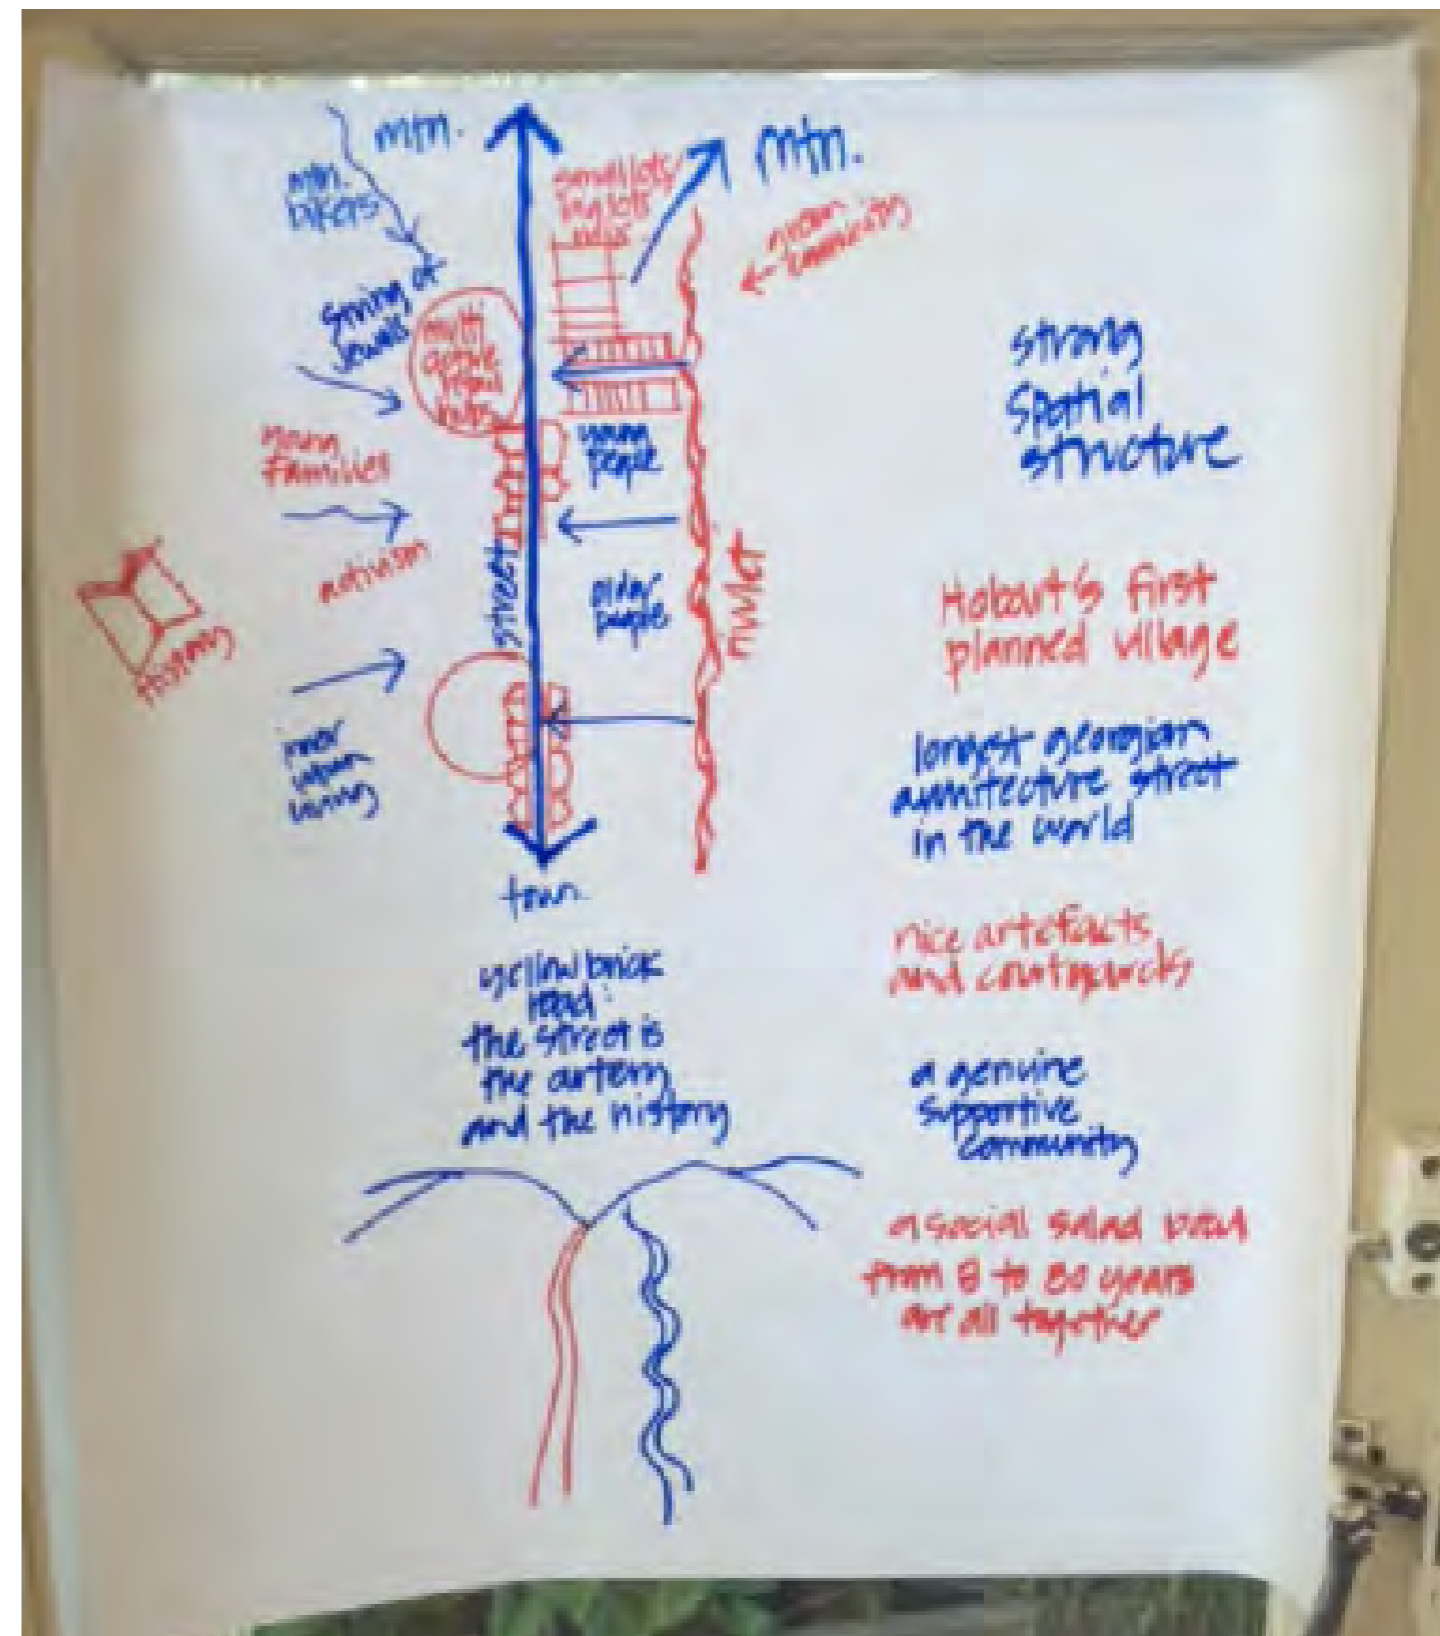 mtn.
mtn.
mtn.
bikers
small lots/
big lots
string of
jewels
multi
active
retail
hubs
young
families
young
people
activism
street
older
people
rivulet
History
inner
urban
living
town
yellow brick
road:
the street is
the artery
and the history
strong
spatial
structure
Hobart's first
planned village
longest georgian
architecture street
in the world
nice artefacts
and courtyards
a genuine
supportive
community
a social salad bowl
from 8 to 80 years
are all together